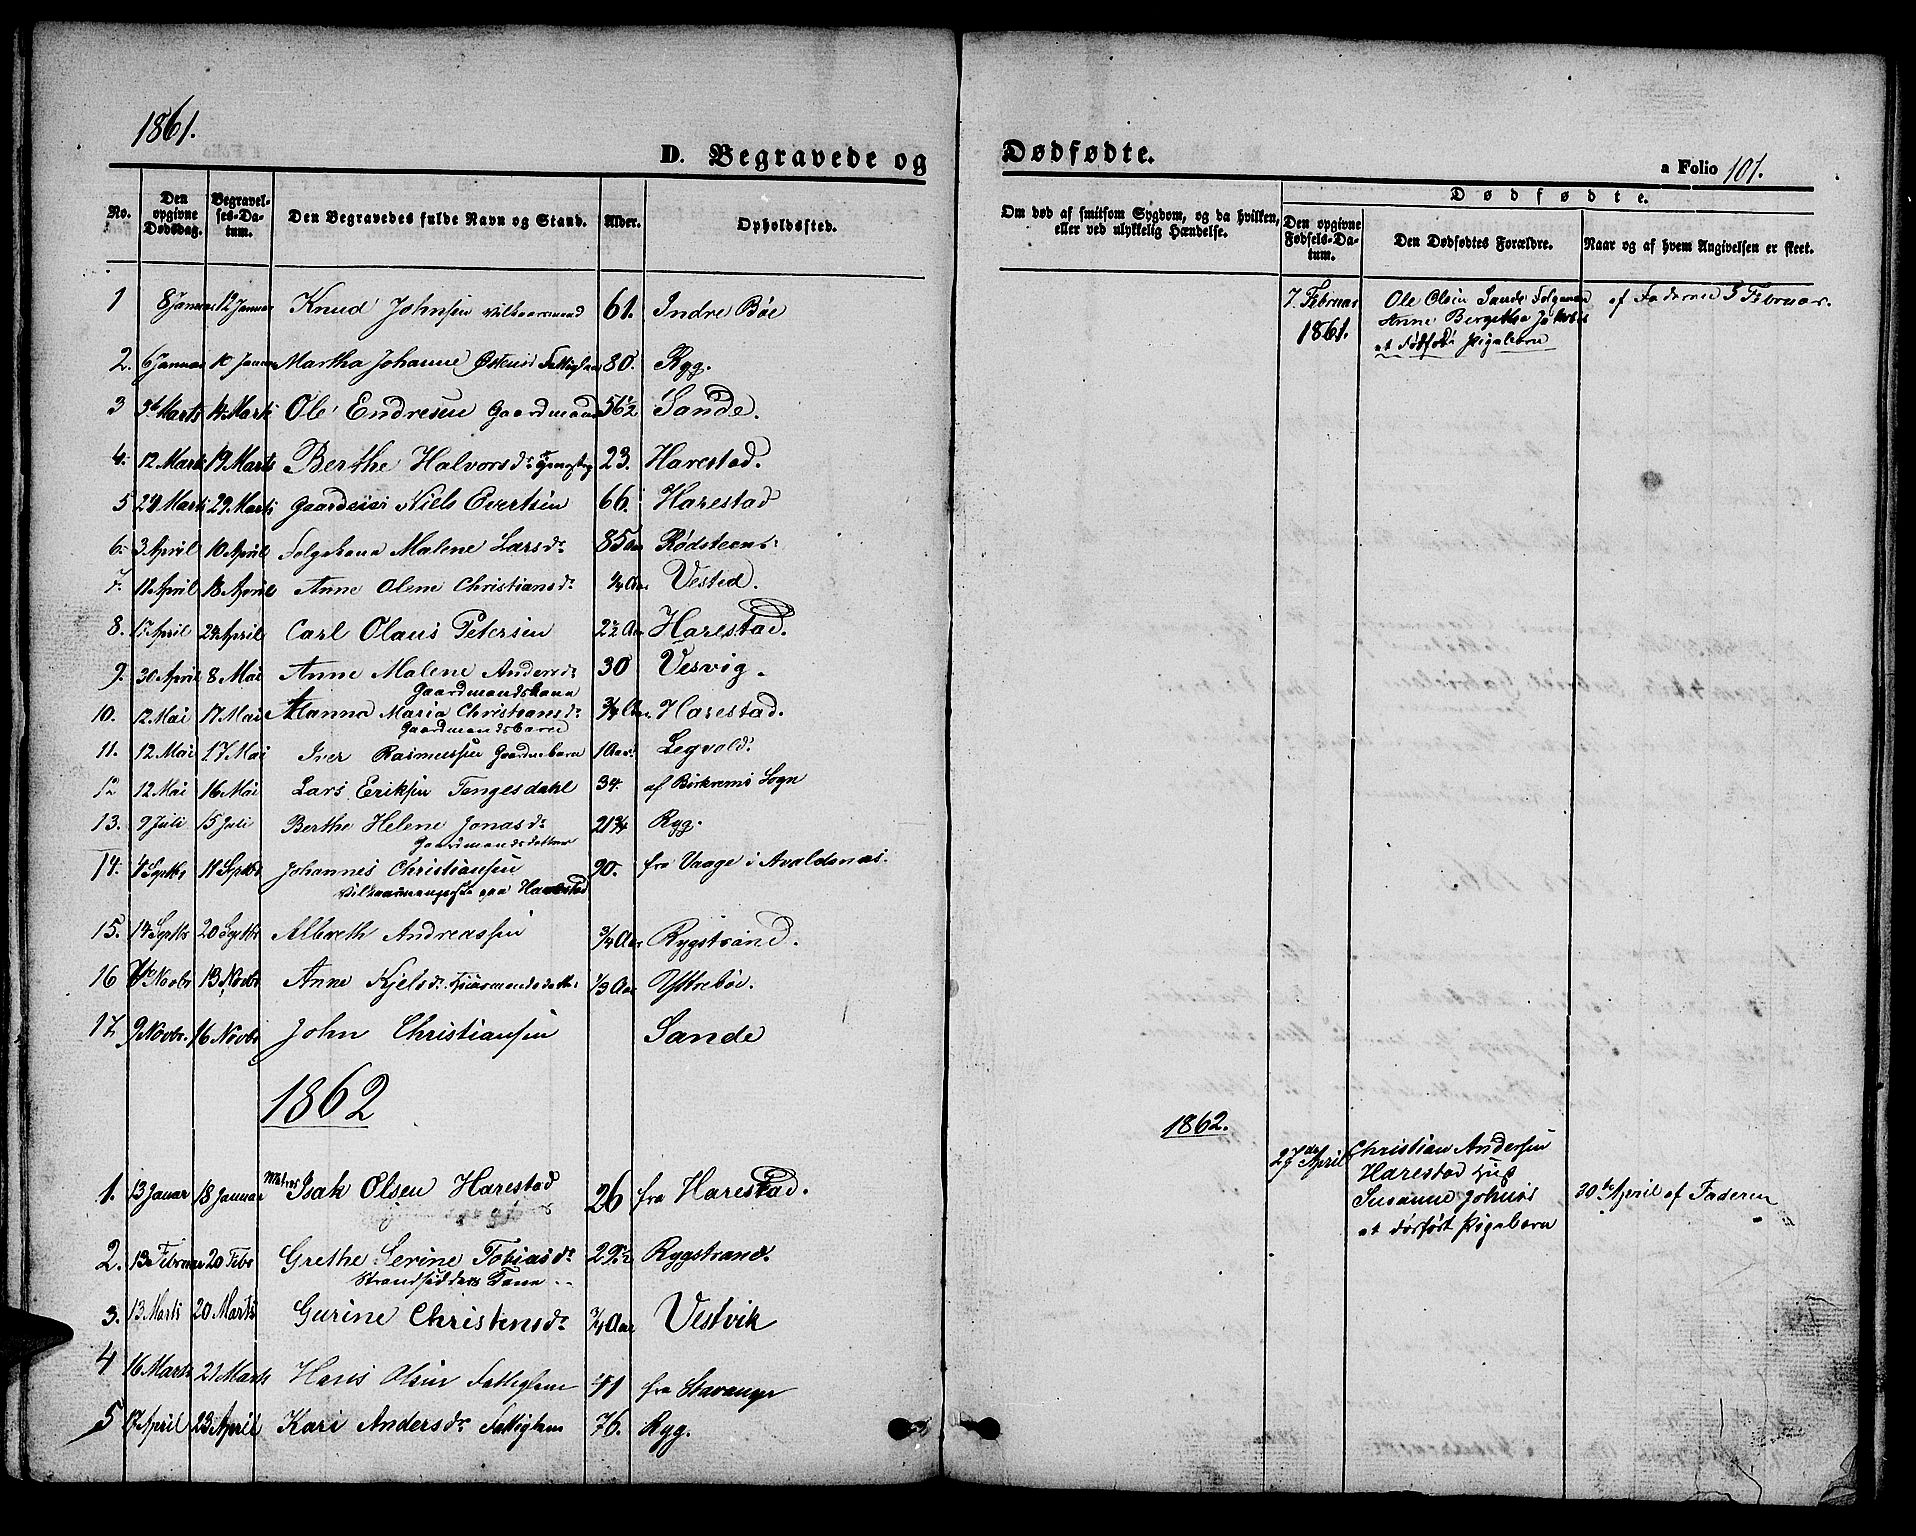 1861.
D. Begravede og
No. Den opgivne Dødsdag. Begravelses-Datum. Den Begravedes fulde Navn og Stand. Alder. Opholdssted.
1 8 Januar 12 Januar Knud Johnsen Vilkaarmand 61. Indre Bøe
2. 6 Januar 10 Januar Martha Johanne Fattiglem 80. Ryg.
3 Marts 14 Marts Ole Endresen Gaardmand 56½ Sande.
4. 12 Marts 19 Marts Berthe Halvorsdr 23. Harestad.
5 24 Marts 29 Marts Niels Evertsen 66. Harestad
6. 3 April 10 April Malene Larsdr 85 Aar Rødsteen
7. 11 April 18 April Anne Olene Christiansdr ¼ Aar Vested.
8. 17 April 24 April Carl Olaus Petersen 2½ Aar Harestad.
9. 30 April 8 Mai Anne Malene Andersdr 30 Vesvig.
Gaardmandskone
10. 12 Mai 17 Mai Manna Maria Christiansdr ¾ Aar. Harestad.
Gaardmandsbarn
11. 12 Mai 17 Mai Iver Rasmussen Gaardmbarn 1 Aar Legvold.
12 12 Mai 16 Mai Lars Eriksen Tengesdahl 34. af Birkrems Sogn
13. 9 Juli 15 Juli Berthe Helene Jonasdr 21¾ Ryg.
Gaardmandsdatter
14. 4 Septbr 11 Septbr Johannes Christiansen 90. fra Vaage i Avaldsnæs.
paa Harestad
15. 14 Septbr 20 Septbr Albreth Andreassen ¾ Aar Rygstrand.
16 Novbr 13 Novbr Anne Kjelsdr ⅓ Aar Yttrebøe.
17. 9 Novbr. 16 Novbr John Christiansen Sande
1862
1. 13 Januar 18 Januar Isak Olsen Harestad 26 fra Harestad.
2. 13 Februar 20 Febr Grethe Serine Tobiasdr 29½ Rygstrand.
Strandsidders Kone
3. 13 Marts 20 Marts Gurine Christensdr ¾ Aar Vestvik
4 16 Marts 21 Marts Hans Olsen Fattiglem 41 fra Stavanger
5 17 April 23 April Kari Andersdr Fattiglem 76. Ryg.
Dødfødte.
a Folio 101.
Dødfødte.
Om død af smitsom Sygdom, og da hvilken, eller ved ulykkelig Hændelse. Den opgivne Fødsels-Datum. Den Dødfødtes Forældre. Naar og af hvem Angivelsen er skeet.
7. Februar Ole Olsen Sande af Faderen Februar.
1861. Anne Bergethe
et Dødfødt Pigebarn
1862.
27de April Christian Andersen
Harestad
Susanne 30te April af Faderen
et dødfødt Pigebarn